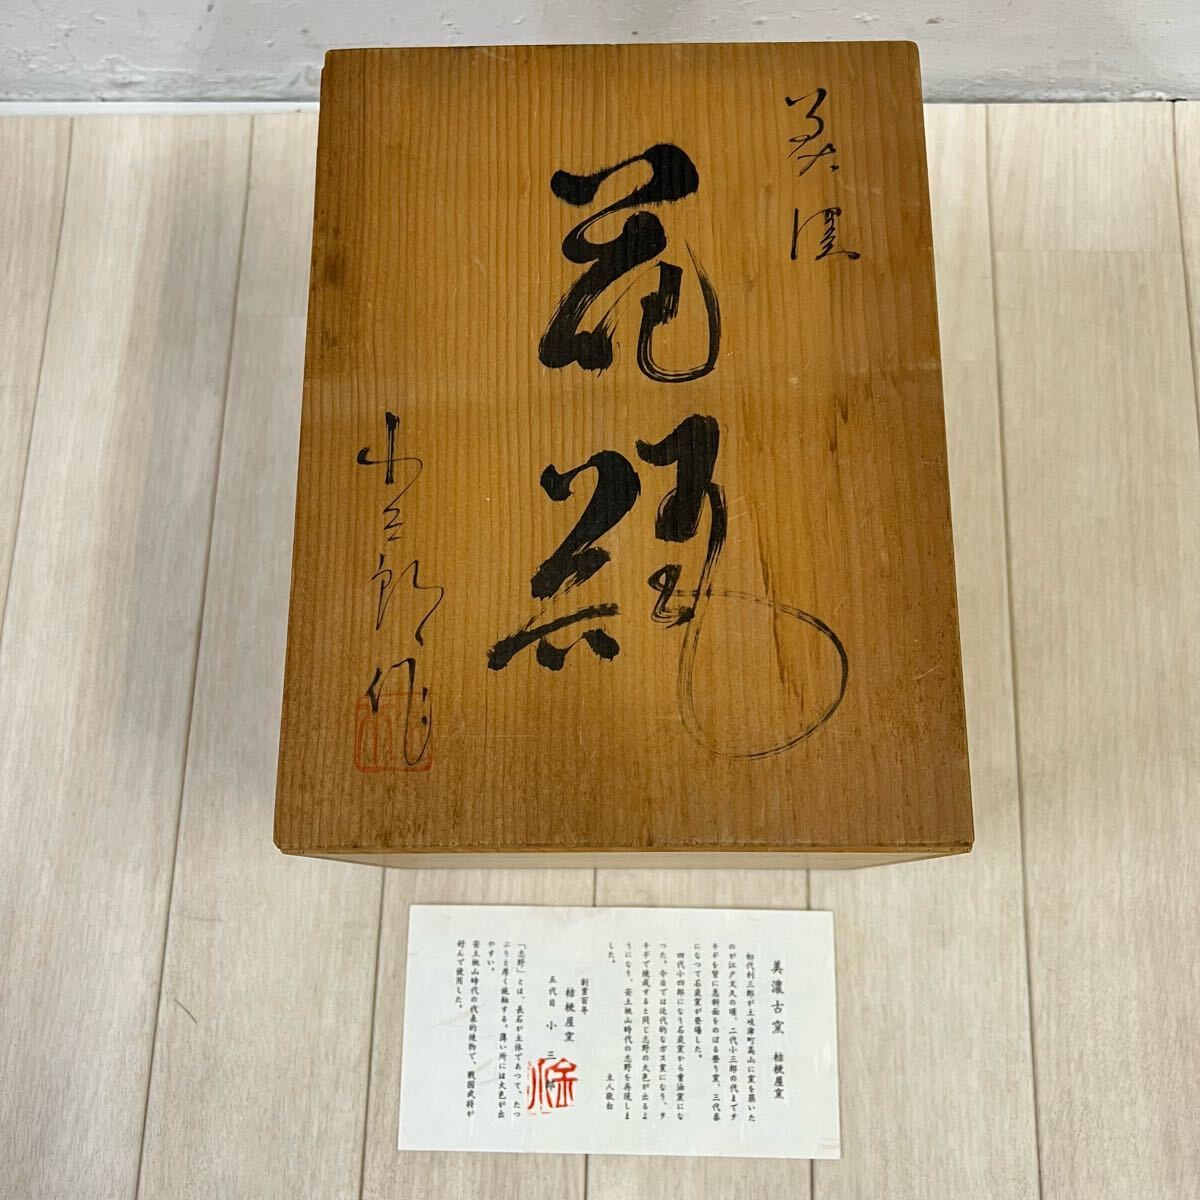 美濃
花瓶
小三郎作
美濃古窯 桔梗屋窯
初代利三郎が土岐津町高山に窯を築いた
のが江戸文久の頃、二代小三郎の代までヲ
キギを背に急斜面をのぼる登り窯、三代泰
になって石炭窯が登場した。
四代小四郎になり石炭窯から重油窯にな
った。今日では近代的なガス窯になり、ヲ
キギで焼成すると同じ志野の火色が出るよ
うになり、安土桃山時代の志野を再現しま
した。
主人敬白
創業百年
桔梗屋窯
五代目 小三郎
「志野」とは、長石が主体であって、たっ
ぷりと厚く施釉する。薄い所には火色が出
やすい。
安土桃山時代の代表的焼物で、戦国武将が
好んで使用した。